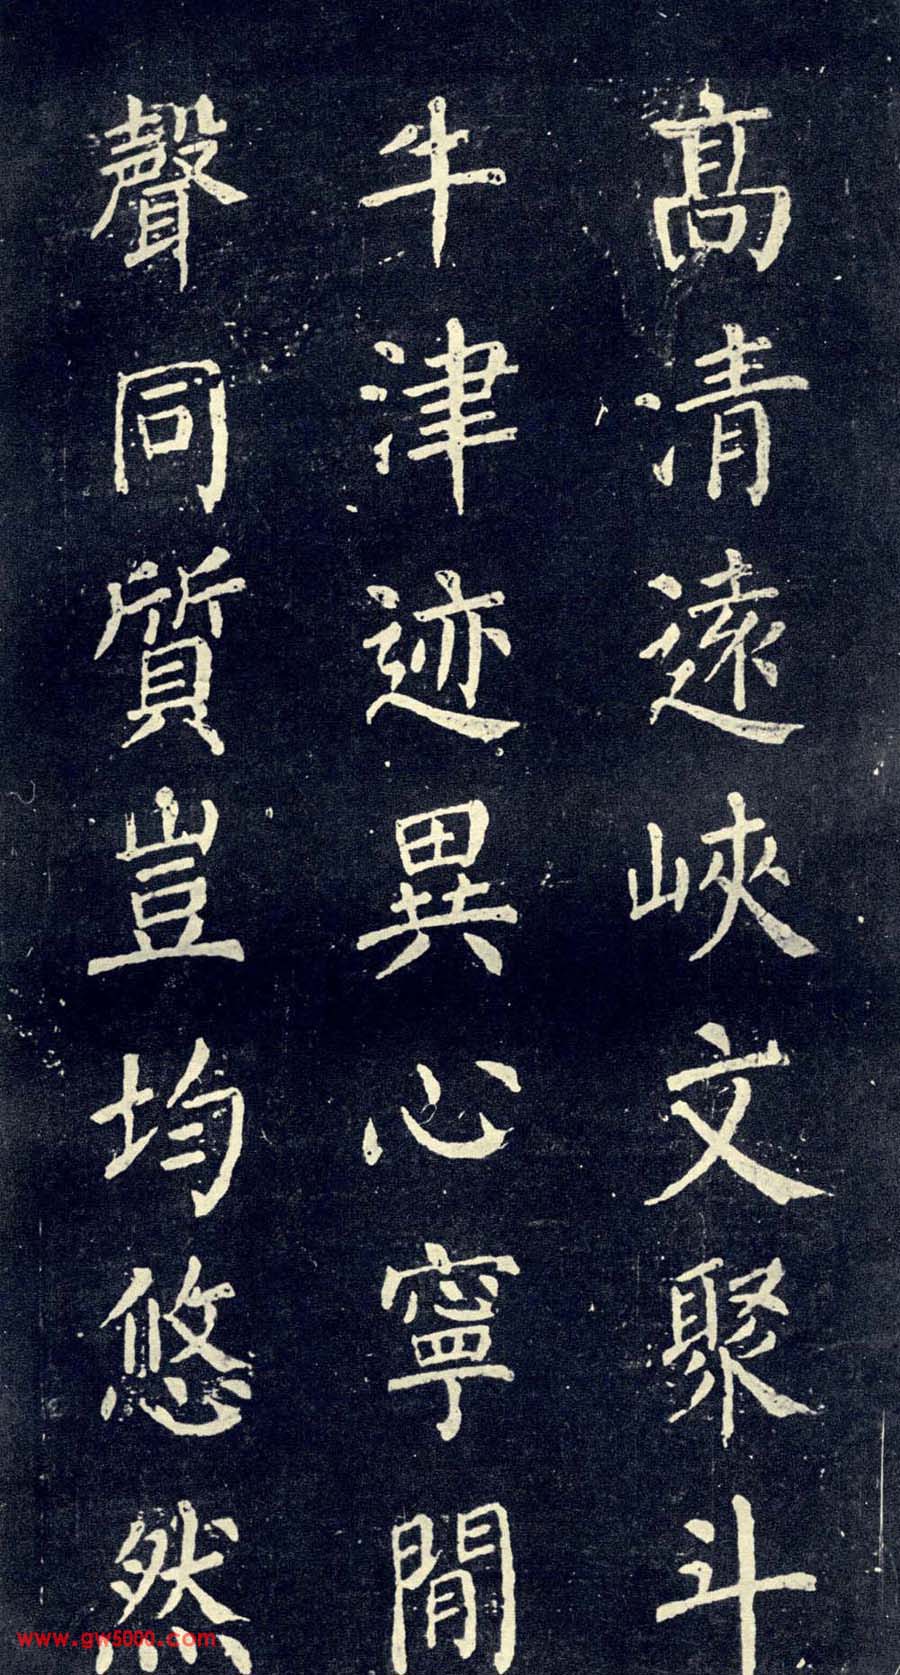 髙清遠峽文聚斗
牛津迹異心寧閒
聲同質豈均悠然
www.gw5000.com